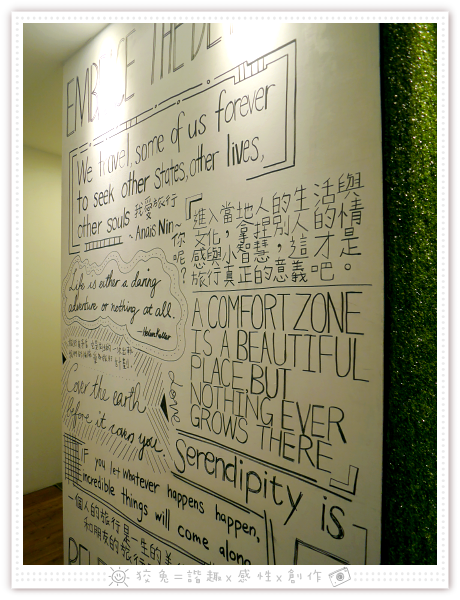 EMBRACE THE DE
We travel, some of us forever
to seek other states, other lives,
other souls
~Anais Nin~
我愛旅行
你呢?
進入當地人的生活與
文化，拿捏別人的情
感與小智慧，這才是
旅行真正的意義吧。
Life is either a daring
adventure or nothing at all.
—Helen Keller
A COMFORT ZONE
IS A BEAUTIFUL
PLACE, BUT
NOTHING EVER
GROWS THERE
Cover the earth
before it covers you.
Love
Serendipity is
IF you let whatever happens happen,
incredible things will come along
一個人的旅行是一生的美
和朋友的旅行
狡兔=諧趣x感性x創作